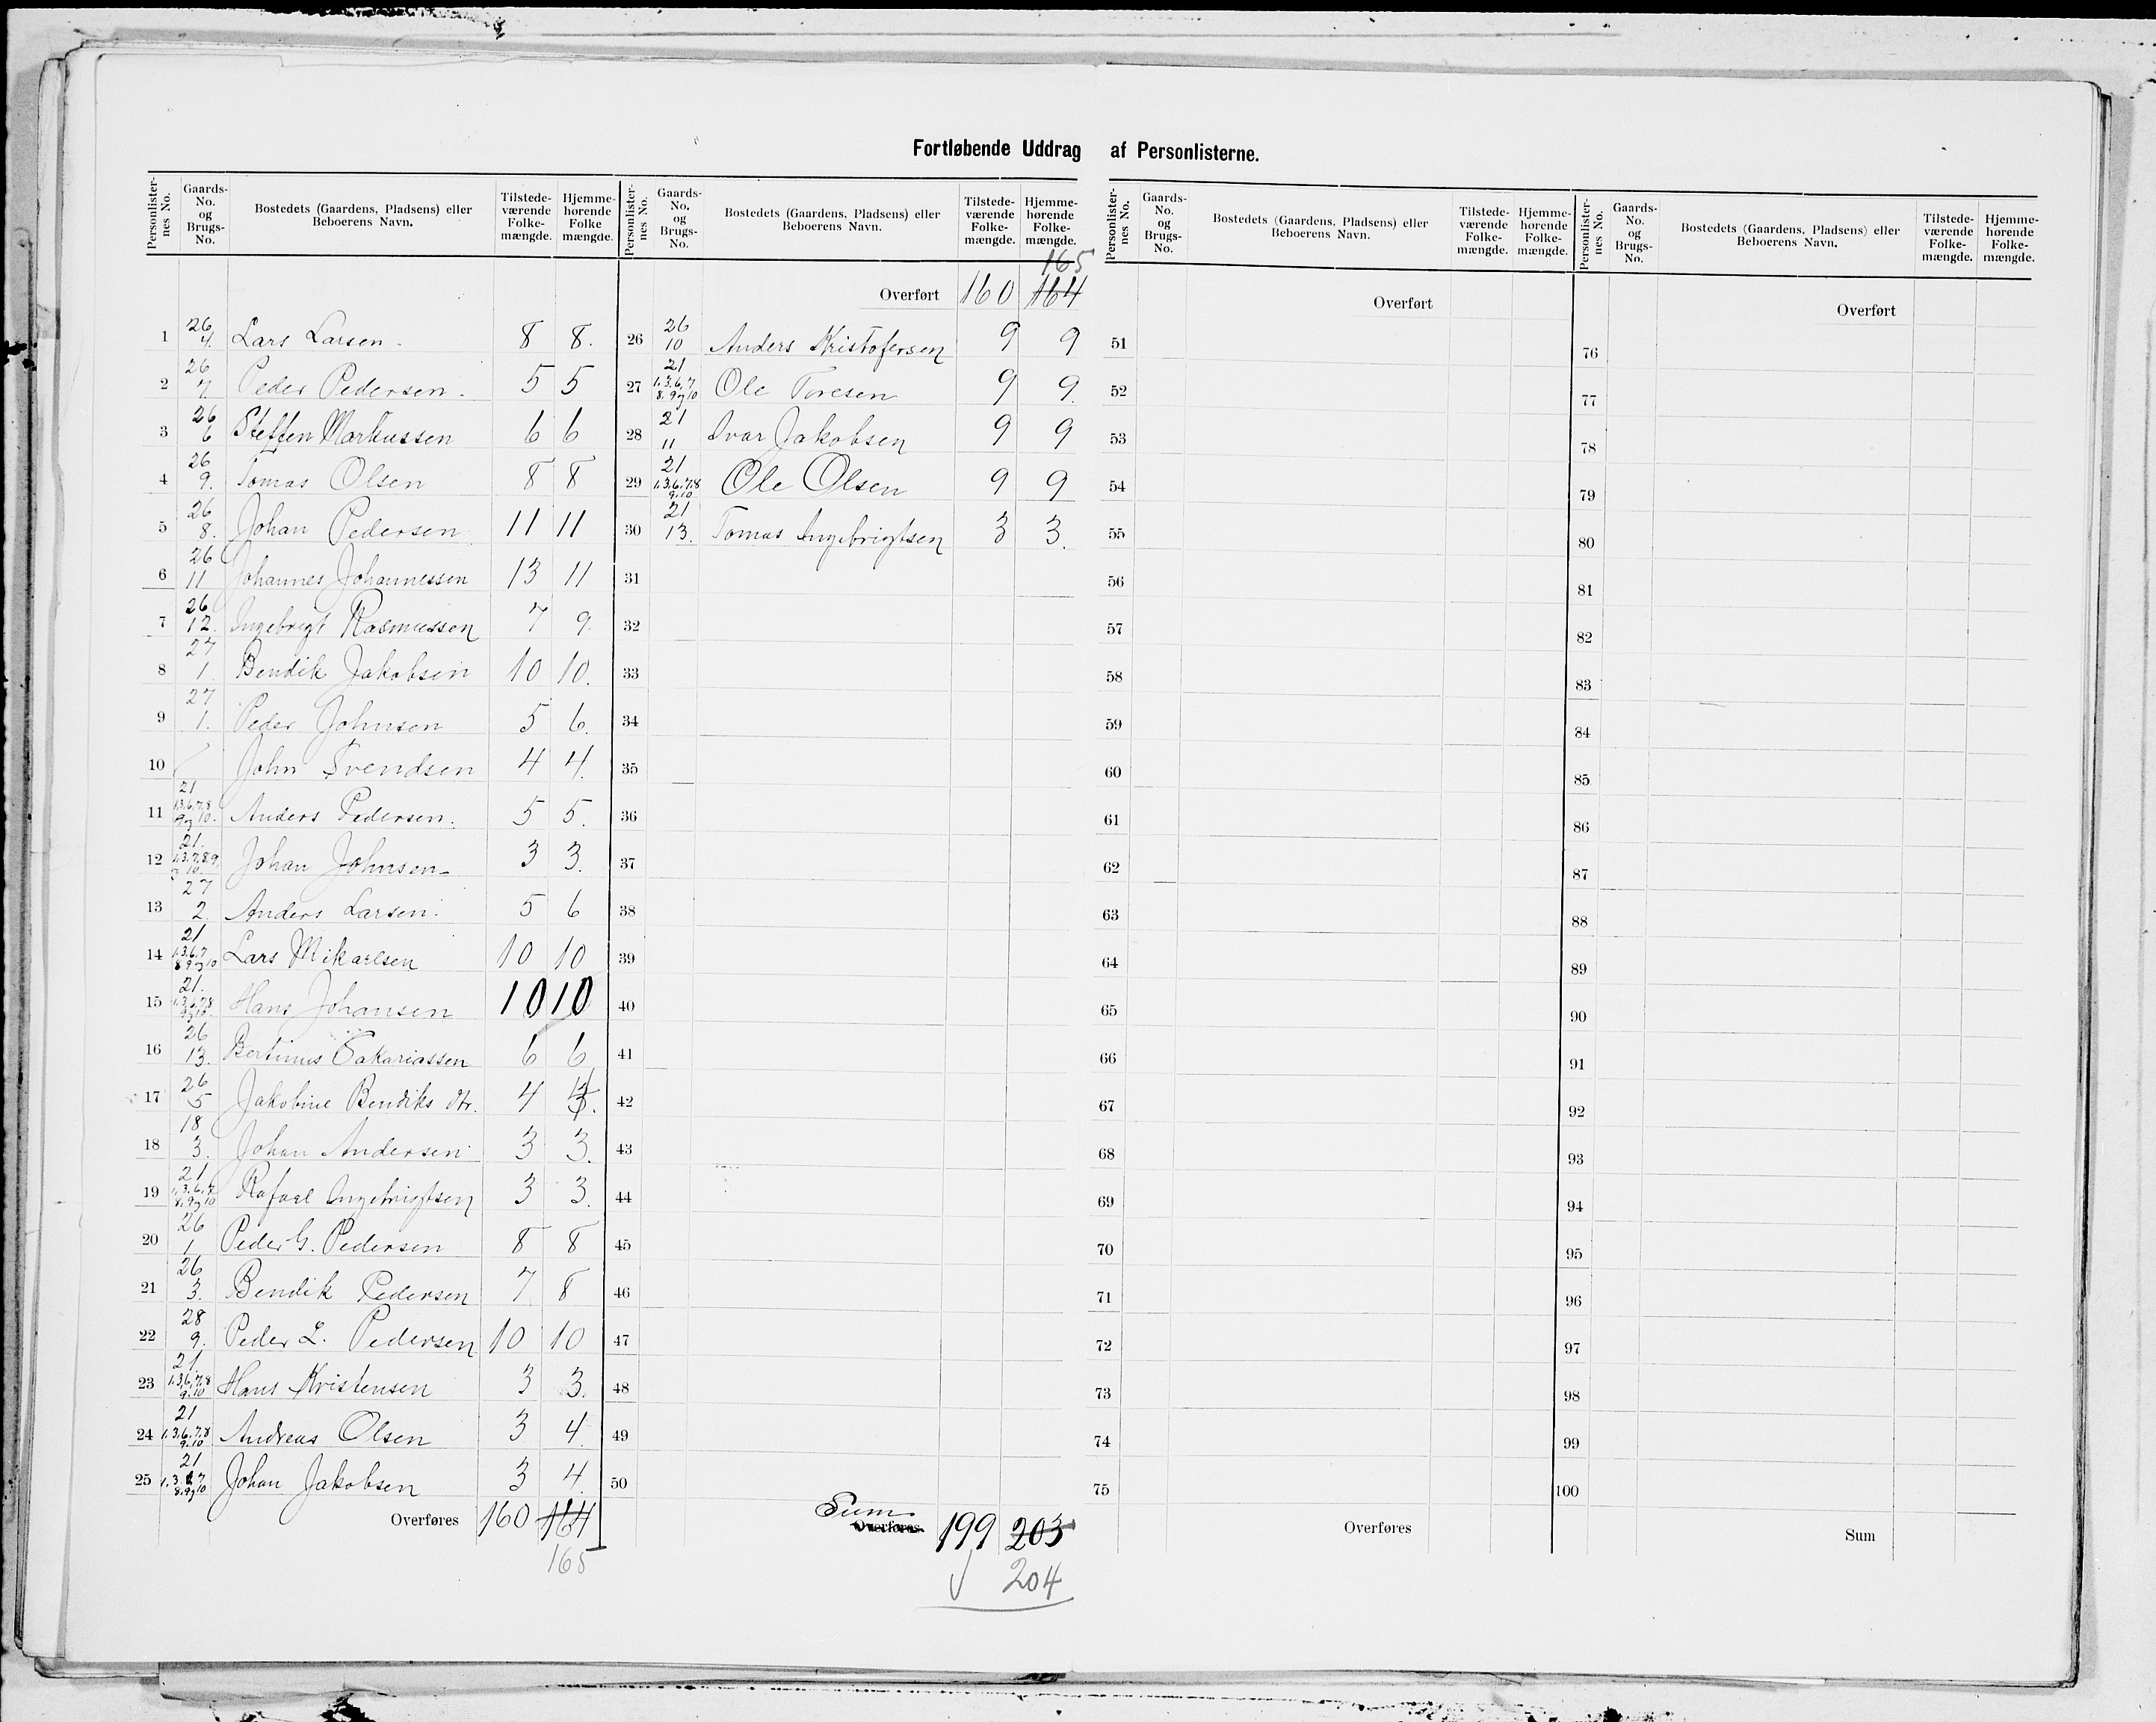 Fortløbende Uddrag af Personlisterne.
Personlister-nes No. Gaards-No. og Brugs-No. Bostedets (Gaardens, Pladsens) eller Beboerens Navn. Tilstede-værende Folke-mængde. Hjemme-hørende Folke mængde.
1 26 4. Lars Larsen. 8 8.
2 26 7. Peder Pedersen. 5 5
3 26 6 Steffen Markussen 6 6
4 26 9. Tomas Olsen 8 8
5 26 8. Johan Pedersen 11 11
6 26 11 Johannes Johannessen 13 11
7 26 12. Ingebrigt Rasmussen 7 9.
8 27 1. Bendik Jakobsen 10 10.
9 27 1. Peder Johnsen 5 6.
10 John Svendsen 4 4.
11 21 1.3.6.7.8 9 og 10. Anders Pedersen. 5 5.
12 21. 1.3.7.8.9 og 10 Johan Johnsen 3 3.
13 27 2. Anders Larsen. 5 6
14 21 1.3.6.7 8 9 og 10 Lars Mikaelsen 10 10
15 21. 1.3.6.7.8 9 og 10. Hans Johansen 10 10
16 26 13. Bertinus Sakariassen 6 6
17 26 5 Jakobine Bendiks dtr. 4 4
18 18 3. Johan Andersen 3 3.
19 21 1.3.6.7 8.9 og 10 Rafael Ingebrigtsen 3 3.
20 26 1 Peder G. Pedersen 8 8
21 26 3. Bendik Pedersen 7 8
22 28 9. Peder L. Pedersen 10 10
23 21. 1.3.6.7.8 9.10 Hans Kristensen 3 3.
24 21 1.3.6.7.8 9.10 Andreas Olsen 3 4.
25 21 1.3.6.7 8.9 og 10 Johan Jakobsen 3 4.
Overføres 160 164
165
Personlister-nes No. Gaards-No. og Brugs-No. Bostedets (Gaardens, Pladsens) eller Beboerens Navn. Tilstede-værende Folke-mængde. Hjemme-hørende Folke-mængde.
165
Overført 160 164
26 26 10 Anders Kristofersen 9 9
27 21 1.3.6.7 8.9 og 10 Ole Toresen 9 9.
28 21 11 Ivar Jakobsen 9 9
29 21 1.3.6.7.8 9.10 Ole Olsen 9 9
30 21 13. Tomas Ingebrigtsen 3 3.
31
32
33
34
35
36
37
38
39
40
41
42
43
44
45
46
47
48
49
50
Sum
Overføres 199 203
204
Personlister-nes No. Gaards-No. og Brugs-No. Bostedets (Gaardens, Pladsens) eller Beboerens Navn. Tilstede-værende Folke-mængde. Hjemme-hørende Folke-mængde.
Overført
51
52
53
54
55
56
57
58
59
60
61
62
63
64
65
66
67
68
69
70
71
72
73
74
75
Overføres
Personlister-nes No. Gaards-No. og Brugs-No. Bostedets (Gaardens, Pladsens) eller Beboerens Navn. Tilstede-værende Folke-mængde. Hjemme-hørende Folke-mængde.
Overført
76
77
78
79
80
81
82
83
84
85
86
87
88
89
90
91
92
93
94
95
96
97
98
99
100
Sum